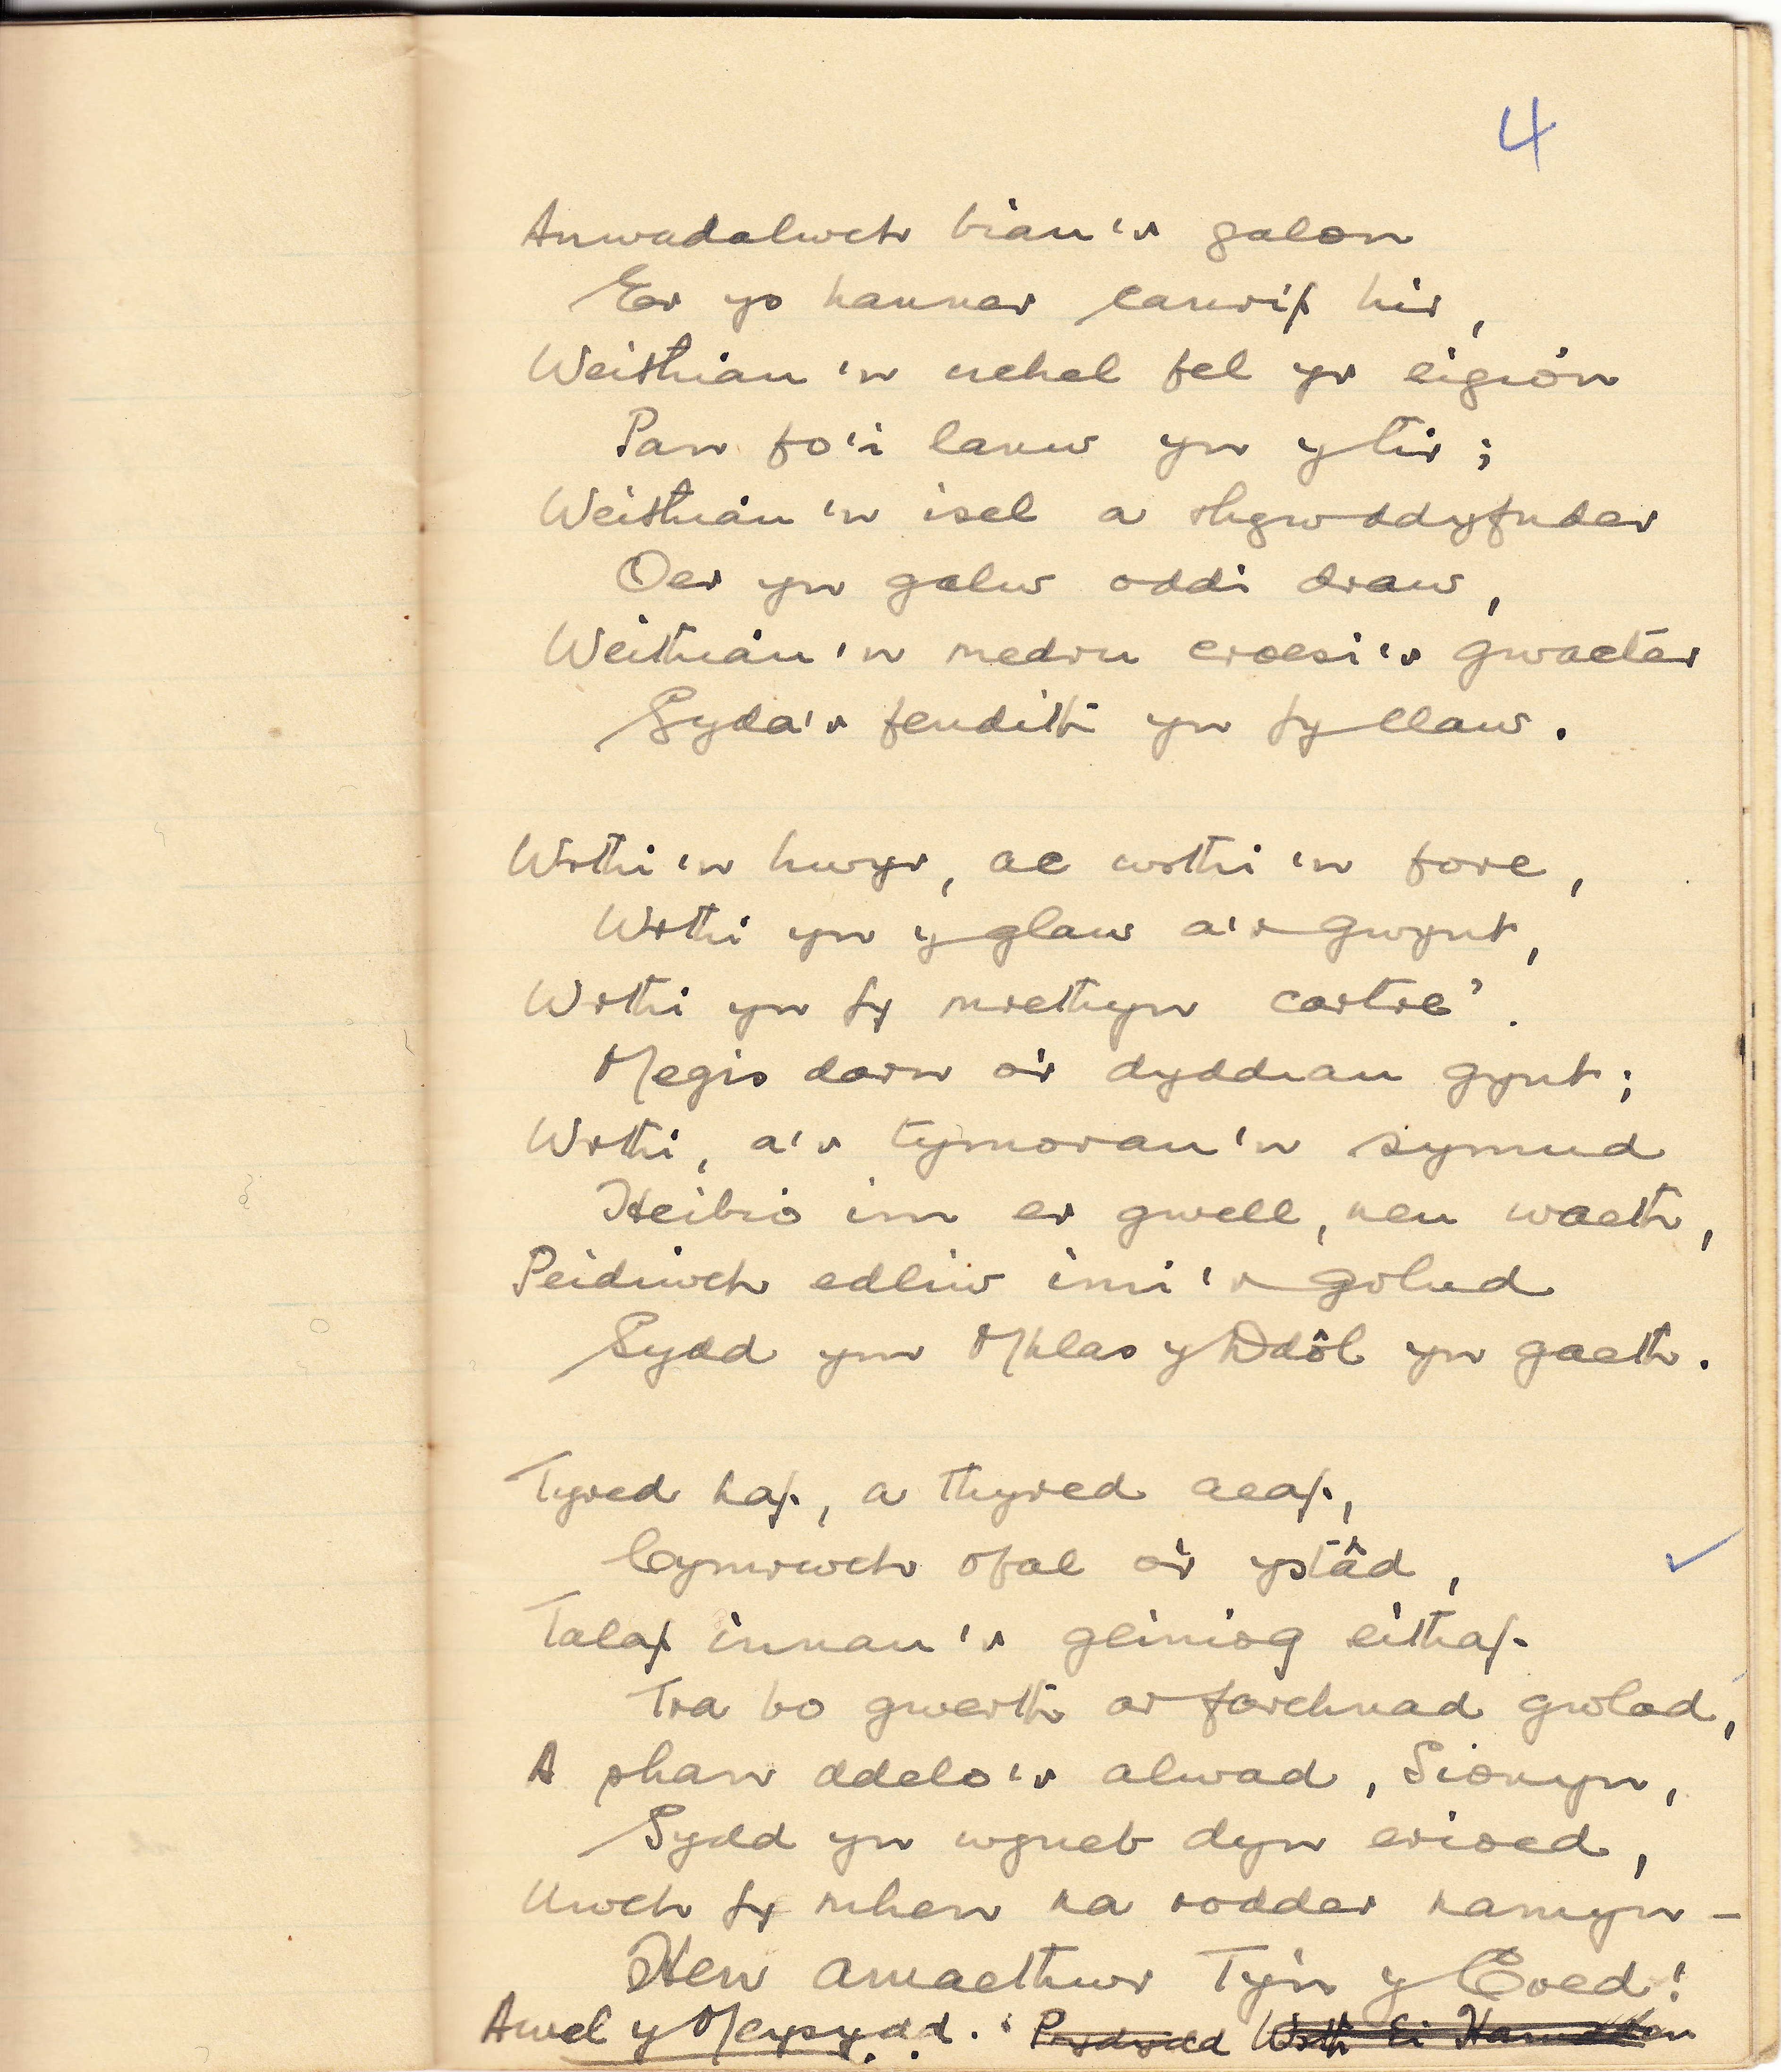 4
Anwadalwch biau'r galon
Er ys hanner canrif hir,
Weithiau'n uchel fel yr eigion
Pan fo'i lanw yn y tir;
Weithiau'n isel a rhyw ddyfnder
Oer yn galw oddi draw,
Weithiau'n medru croesi'r gwacter
Gyda'r fendith yn fy llaw.
Wrthi'n hwyr, ac wrthi'n fore,
Wrthi yn y glaw a'r gwynt,
Wrthi yn fy mrethyn cartre'.
Megis darn o'r dyddiau gynt;
Wrthi, a'r tymorau'n symud
Heibio im er gwell, neu waeth,
Peidiwch edliw imi'r golud
Sydd ym Mhlas y Ddôl yn gaeth.
Tyred haf, a thyred aeaf,
Cymrwch ofal o'r ystâd,
Talaf innau'r geiniog eithaf
Tra bo gwerth ar farchnad gwlad,
A phan ddelo'r alwad, Sionyn,
Sydd yn wyneb dyn erioed,
Uwch fy mhen na rodder namyn –
Hen amaethwr Ty'n y Coed!
Awel y Meysydd. Wrth Ei Hamdden